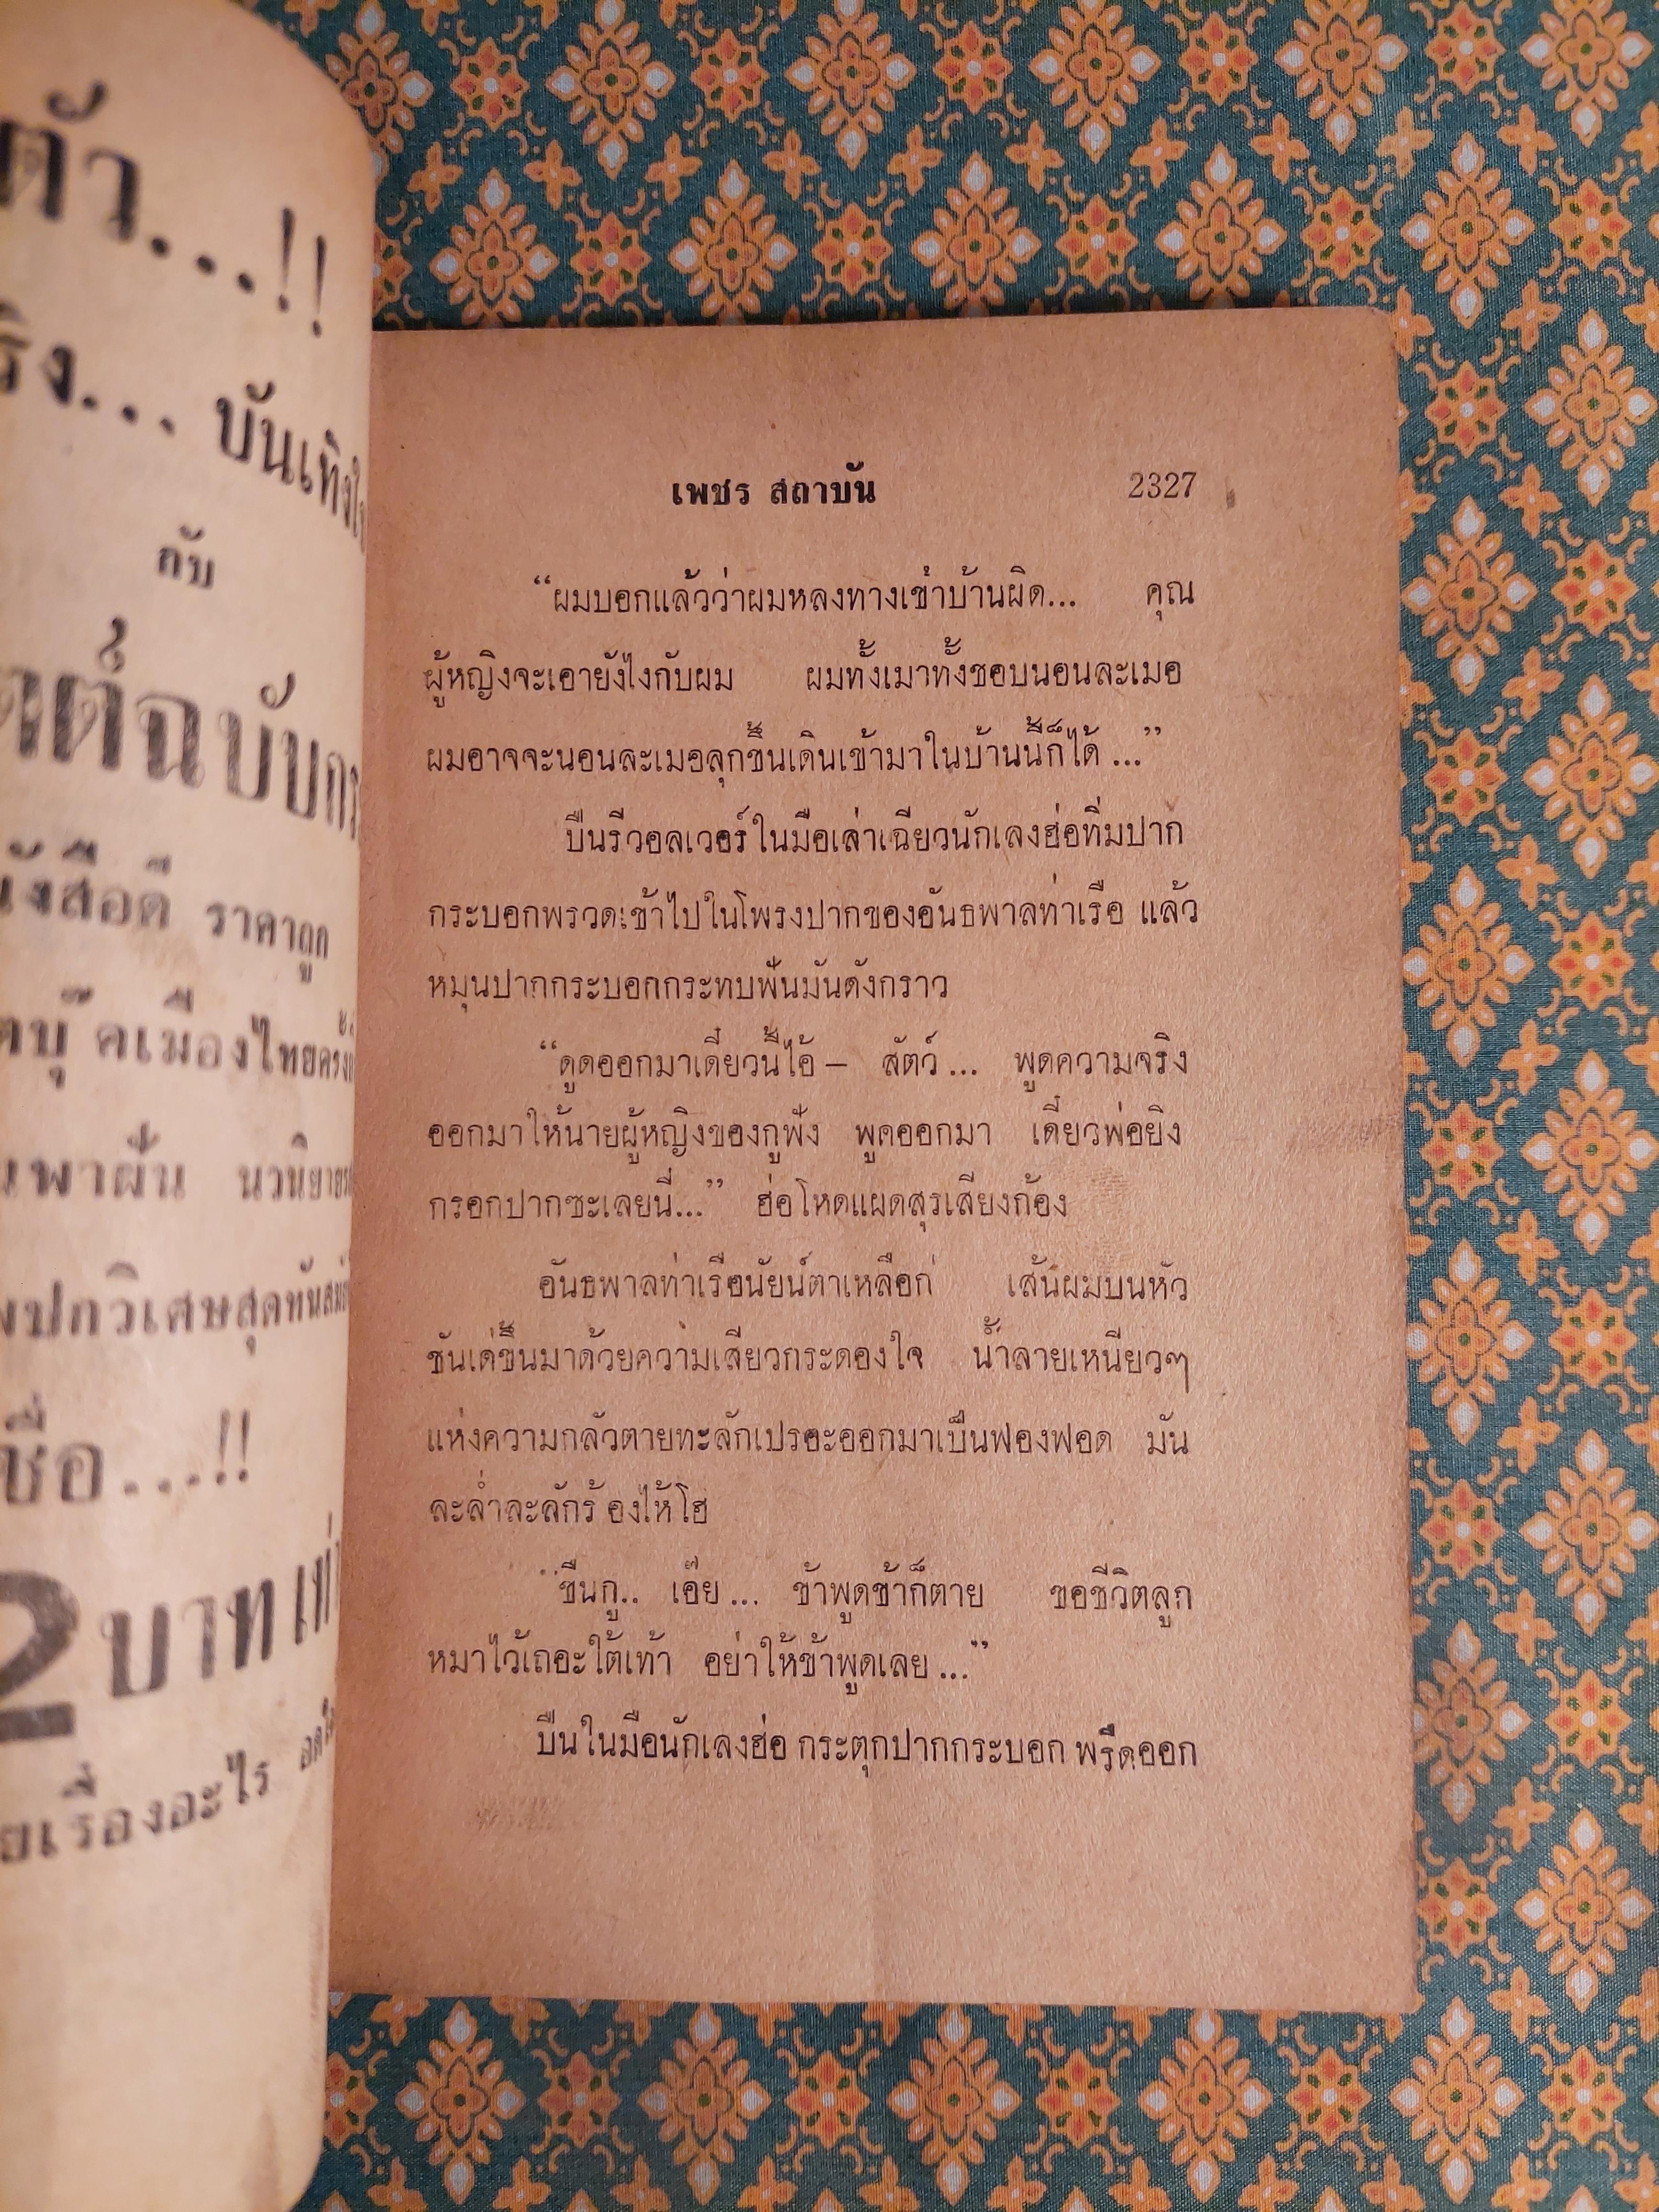 ตัว...!!
บันเทิง
กับ
ฉบับ
ราคาถูก
เมืองไทย
พาฝัน
ปกวิเศษสุดทันสมัย
2 บาท
เรื่องอะไร
เพชร สถาบัน 2327
“ผมบอกแล้วว่าผมหลงทางเข้าบ้านผิด... คุณ
ผู้หญิงจะเอายังไงกับผม ผมทั้งเมาทั้งชอบนอนละเมอ
ผมอาจจะนอนละเมอลุกขึ้นเดินเข้ามาในบ้านนี้ก็ได้ ...”
ปืนรีวอลเวอร์ในมือเล่าเฉียวนักเลงฮ่อทิ่มปาก
กระบอกพรวดเข้าไปในโพรงปากของอันธพาลท่าเรือ แล้ว
หมุนปากกระบอกกระทบฟันมันดังกราว
“ดูดออกมาเดี๋ยวนี้ไอ้ – สัตว์ ... พูดความจริง
ออกมาให้นายผู้หญิงของกูฟัง พูดออกมา เดี๋ยวพ่อยิง
กรอกปากซะเลยนี่...” ฮ่อโหดแผดสุรเสียงก้อง
อันธพาลท่าเรือนัยน์ตาเหลือก เส้นผมบนหัว
ชันเด่ขึ้นมาด้วยความเสียวกระดองใจ น้ำลายเหนียวๆ
แห่งความกลัวตายทะลักเปรอะออกมาเป็นฟองฟอด มัน
ละล่ำละลักร้ องไห้โฮ
“ขืนกู.. เอ๊ย ... ข้าพูดข้าก็ตาย ขอชีวิตลูก
หมาไว้เถอะใต้เท้า อย่าให้ข้าพูดเลย ...”
ปืนในมือนักเลงฮ่อ กระตุกปากกระบอก พรืดออก